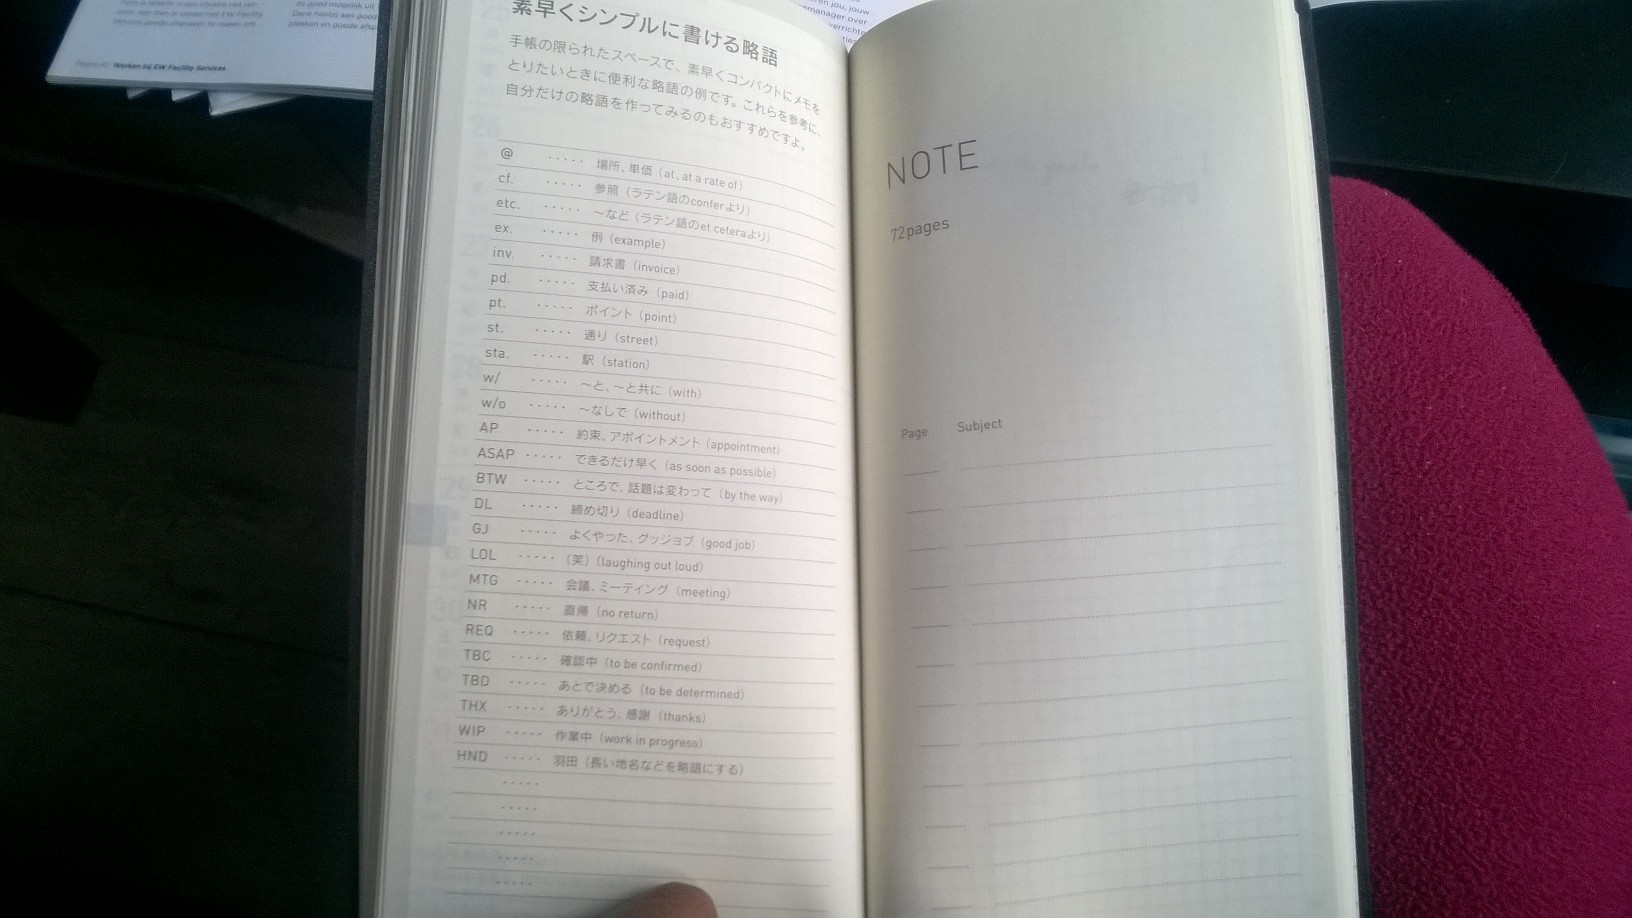 Werken bij EW Facility Services
素早くシンプルに書ける略語
手帳の限られたスペースで、素早くコンパクトにメモを
とりたいときに便利な略語の例です。これらを参考に、
自分だけの略語を作ってみるのもおすすめですよ。
@ ····· 場所、単価（at, at a rate of）
cf. ····· 参照（ラテン語のconferより）
etc. ····· ～など（ラテン語のet ceteraより）
ex. ····· 例（example）
inv. ····· 請求書（invoice）
pd. ····· 支払い済み（paid）
pt. ····· ポイント（point）
st. ····· 通り（street）
sta. ····· 駅（station）
w/ ····· ～と、～と共に（with）
w/o ····· ～なしで（without）
AP ····· 約束、アポイントメント（appointment）
ASAP ····· できるだけ早く（as soon as possible）
BTW ····· ところで、話題は変わって（by the way）
DL ····· 締め切り（deadline）
GJ ····· よくやった、グッジョブ（good job）
LOL ····· （笑）（laughing out loud）
MTG ····· 会議、ミーティング（meeting）
NR ····· 直帰（no return）
REQ ····· 依頼、リクエスト（request）
TBC ····· 確認中（to be confirmed）
TBD ····· あとで決める（to be determined）
THX ····· ありがとう、感謝（thanks）
WIP ····· 作業中（work in progress）
HND ····· 羽田（長い地名などを略語にする）
·····
·····
·····
·····
·····
NOTE
72pages
Page Subject